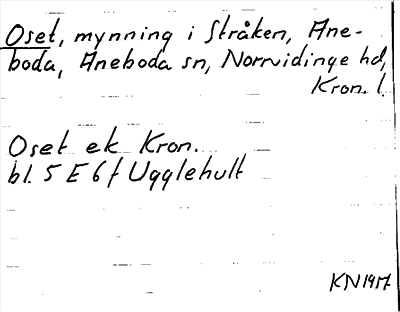 Oset, mynning i Stråken, Ane-
boda, Aneboda sn, Norrvidinge hd,
Kron. l.
Oset ek Kron.
bl. 5 E 6 f Ugglehult
KN 1917